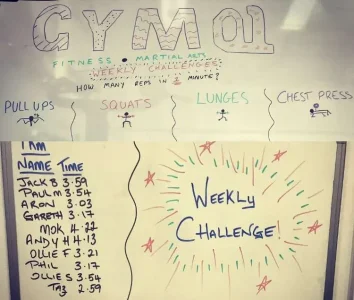 CYMOL
FITNESS • MARTIAL ARTS
WEEKLY CHALLENGES!
HOW MANY REPS IN 1 MINUTE?
PULL UPS SQUATS LUNGES CHEST PRESS
NAME TIME
JACK B 3.59
PAUL M 3.54
ARON 3.03
GARETH 3.17
MOK 4.22
ANDY H 4.13
OLLIE F 3.21
PHIL 3.17
OLLIE S 3.54
TAZ 2.59
WEEKLY
CHALLENGE!